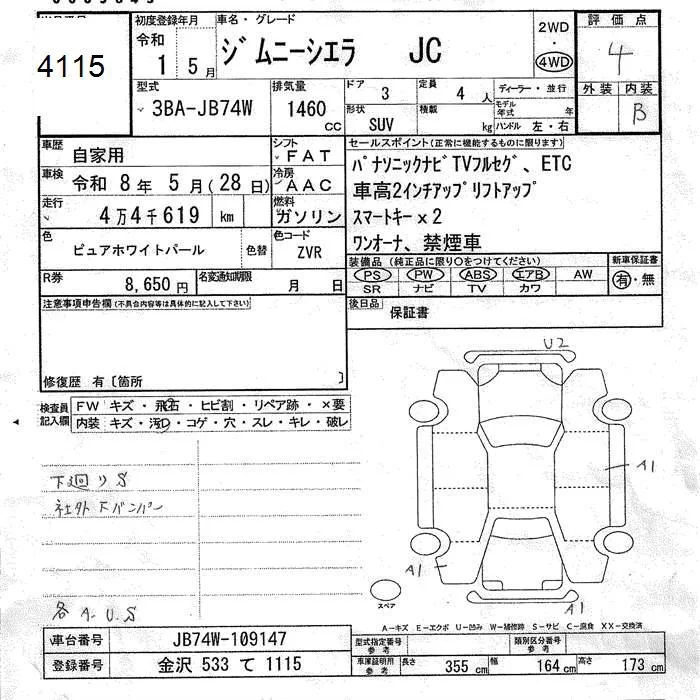 4115
初度登録年月
令和
1 5月
車名・グレード
ジムニーシエラ JC
2WD
・
4WD
評価点
4
外装 内装
B
型式
3BA-JB74W
排気量
1460
cc
ドア
3
定員
4 人
形状
SUV
積載
kg
ディーラー・並行
モデル年式 年
ハンドル 左・右
車歴
自家用
シフト
FAT
車検
令和 8年 5月(28日)
冷房
AAC
走行
4万4千619 km
燃料
ガソリン
色
ピュアホワイトパール
色替
色コード
ZVR
R券
8,650円
名変通知期限
月 日
セールスポイント(正常に機能するものに限ります)
パナソニックナビTVフルセグ、ETC
車高2インチアップリフトアップ
スマートキー×2
ワンオーナ、禁煙車
装備品(純正品に限り○をつけてください)
PS PW ABS エアB AW
SR ナビ TV カワ
新車保証書
有・無
後日品
保証書
注意事項申告欄(不具合内容等は具体的に記入して下さい)
修復歴 有〔箇所 〕
検査員
記入欄
FW キズ・飛石・ヒビ割・リペア跡・×要
内装 キズ・汚・コゲ・穴・スレ・キレ・破レ
下廻りS
社外Fバンパー
各A.U.S
U2
A1
A1
A1
スペア
A-キズ E-エクボ U-凹み W-補修跡 S-サビ C-腐食 XX-交換済
車台番号
JB74W-109147
登録番号
金沢 533 て 1115
型式指定番号
参考
類別区分番号
参考
車庫証明用
参考
長さ 355cm 幅 164cm 高さ 173cm